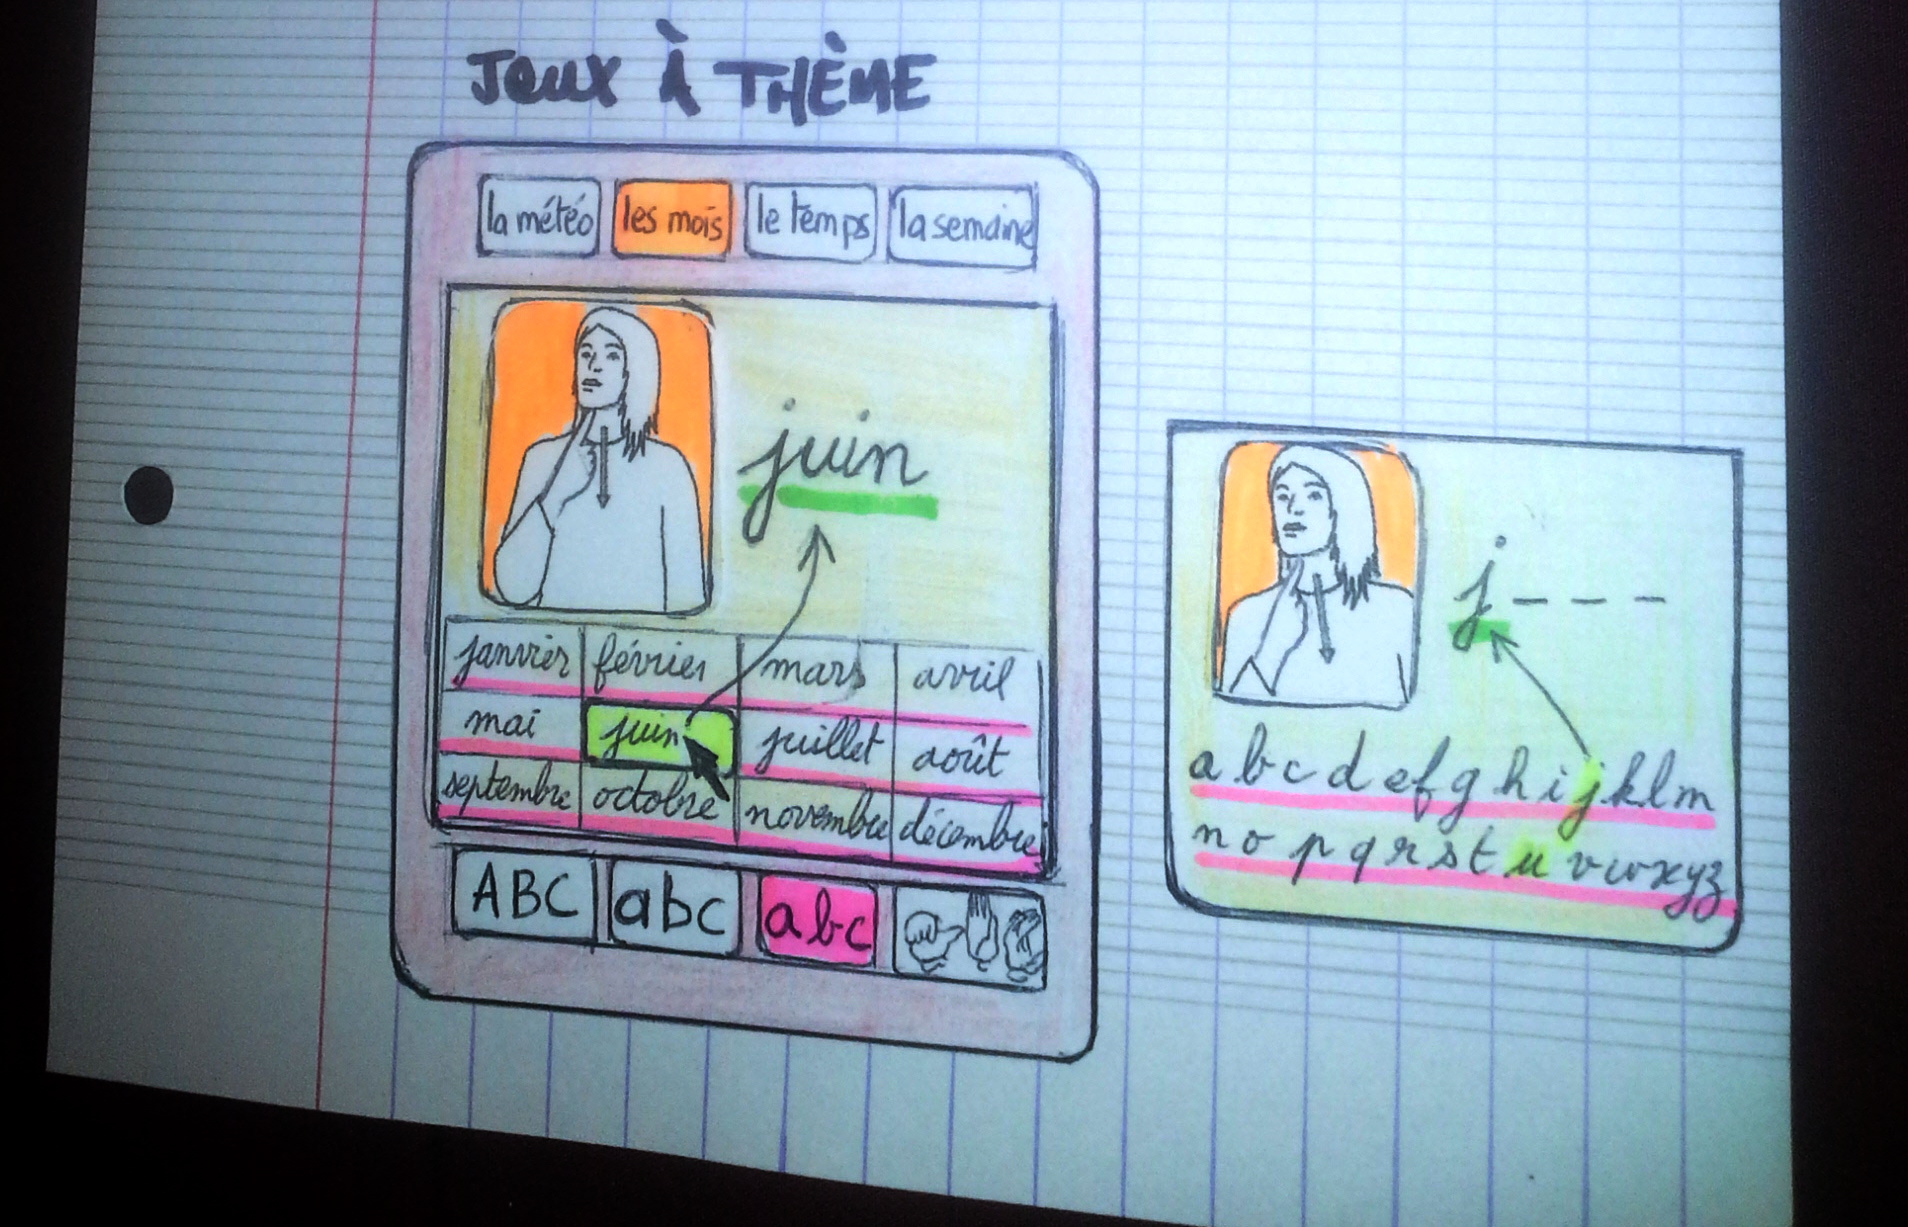 JEUX À THÈME
la météo les mois le temps la semaine
juin
janvier février mars avril
mai juin juillet août
septembre octobre novembre décembre
ABC abc abc
j _ _ _
a b c d e f g h i j k l m
n o p q r s t u v w x y z